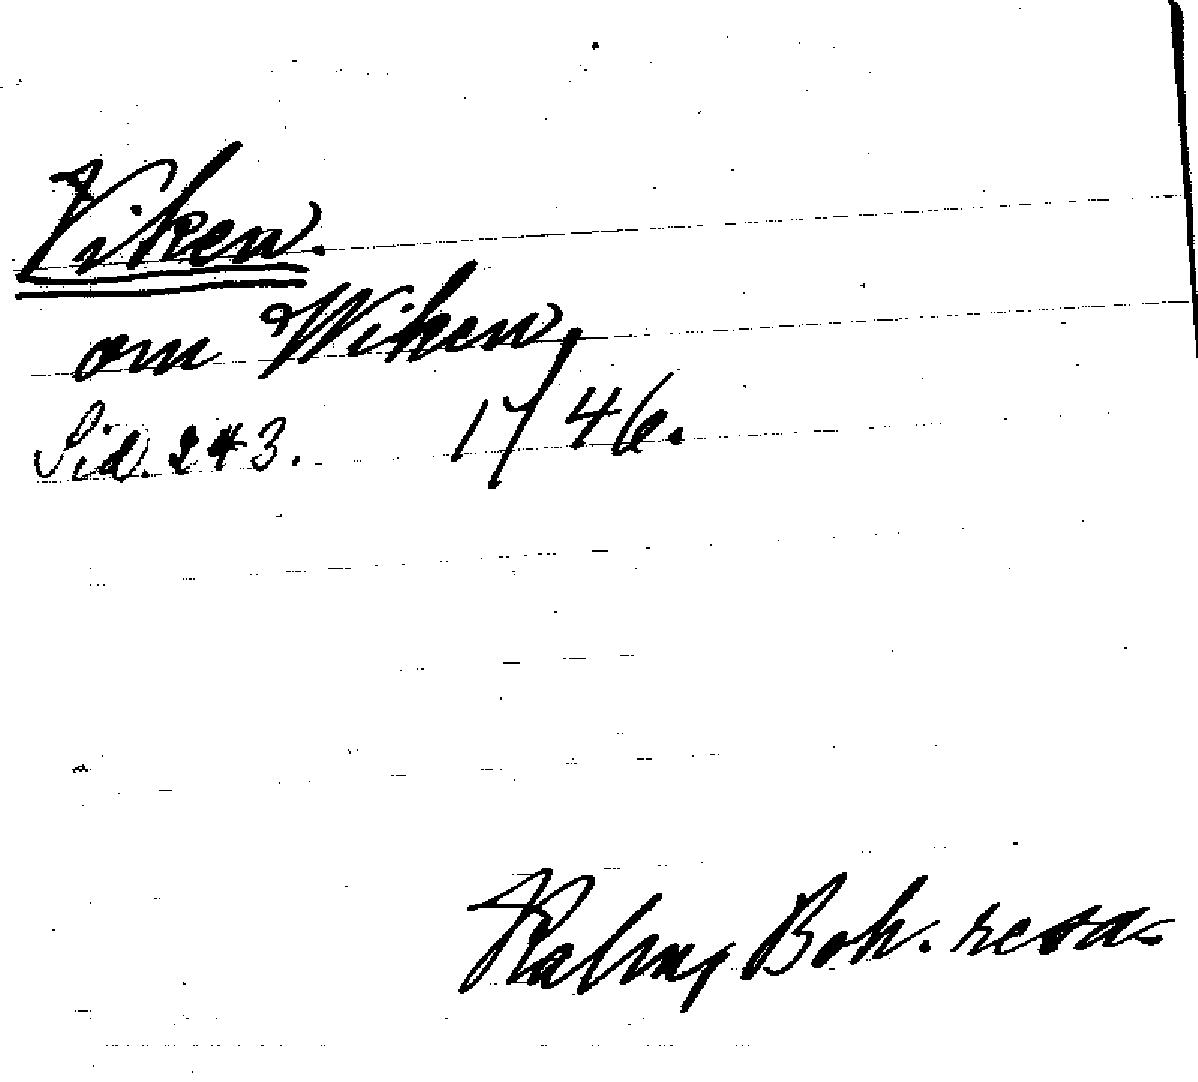 Viken.
om Wiken,
Sid. 243. 17/46.
Kalms Boh. resa